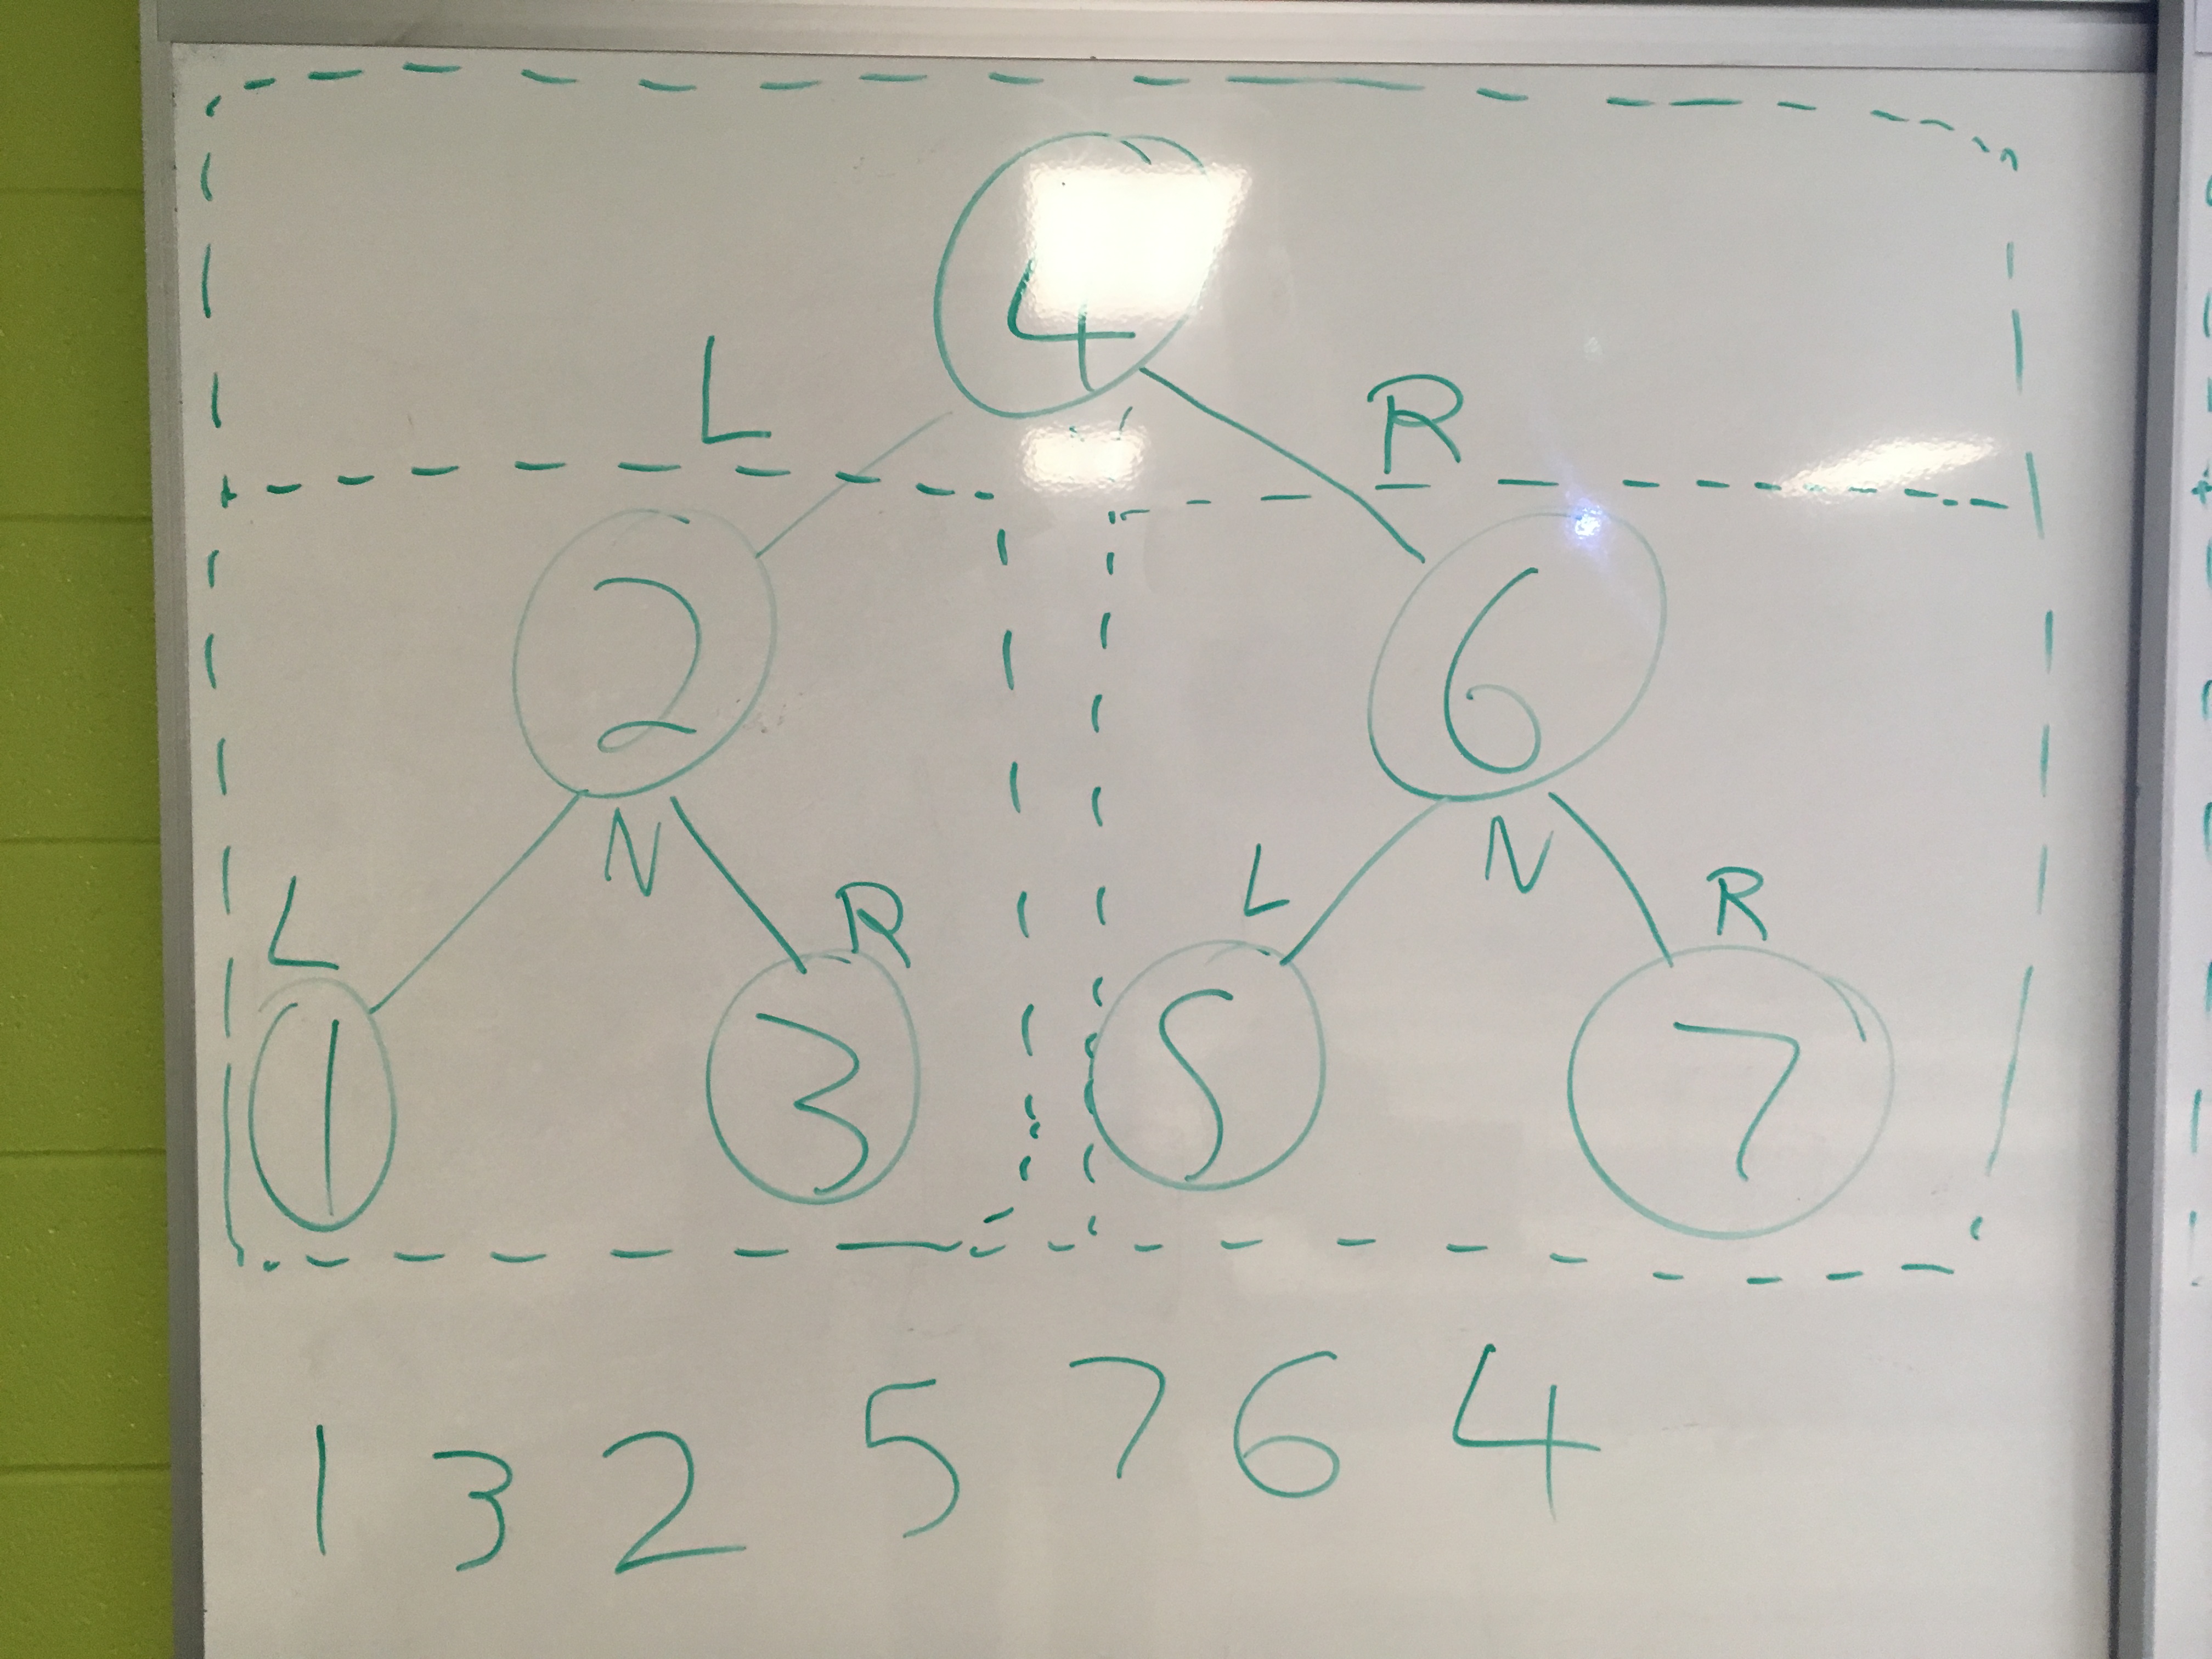 4
L R
2 6
N N
L R L R
1 3 5 7
1 3 2 5 7 6 4